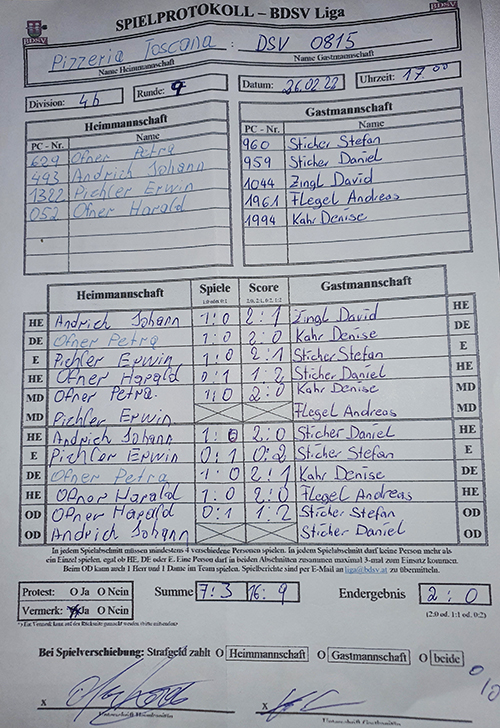 SPIELPROTOKOLL – BDSV Liga
BDSV
BDSV
Pizzeria Toscana : DSV 0815
Name Heimmannschaft Name Gastmannschaft
Division: 4b Runde: 9 Datum: 26.02.22 Uhrzeit: 17.00
Heimmannschaft Gastmannschaft
PC - Nr. Name PC - Nr. Name
629 Ofner Petra 960 Sticher Stefan
493 Andrich Johann 959 Sticher Daniel
1322 Pichler Erwin 1044 Zingl David
052 Ofner Harald 1961 Flegel Andreas
1994 Kahr Denise
Heimmannschaft Spiele Score Gastmannschaft
1:0 oder 0:1 2:0, 2:1, 0:2, 1:2
HE Andrich Johann 1:0 2:1 Zingl David HE
DE Ofner Petra 1:0 2:0 Kahr Denise DE
E Pichler Erwin 1:0 2:1 Sticher Stefan E
HE Ofner Harald 0:1 1:2 Sticher Daniel HE
MD Ofner Petra. 1:0 2:0 Kahr Denise MD
MD Pichler Erwin Flegel Andreas MD
HE Andrich Johann 1:0 2:0 Sticher Daniel HE
E Pichler Erwin 0:1 0:2 Sticher Stefan E
DE Ofner Petra 1:0 2:1 Kahr Denise DE
HE Ofner Harald 1:0 2:0 Flegel Andreas HE
OD Ofner Harald 0:1 1:2 Sticher Stefan OD
OD Andrich Johann Sticher Daniel OD
In jedem Spielabschnitt müssen mindestens 4 verschiedene Personen spielen. In jedem Spielabschnitt darf keine Person mehr als
ein Einzel spielen, egal ob HE, DE oder E. Eine Person darf in beiden Abschnitten zusammen maximal 3-mal zum Einsatz kommen.
Beim OD kann auch 1 Herr und 1 Dame im Team spielen. Spielberichte sind per E-Mail an liga@bdsv.at zu übermitteln.
Protest: O Ja O Nein Summe 7:3 16:9 Endergebnis 2:0
Vermerk: Ja O Nein (2:0 od. 1:1 od. 0:2)
Bei Spielverschiebung: Strafgeld zahlt O Heimmannschaft O Gastmannschaft O beide
x x